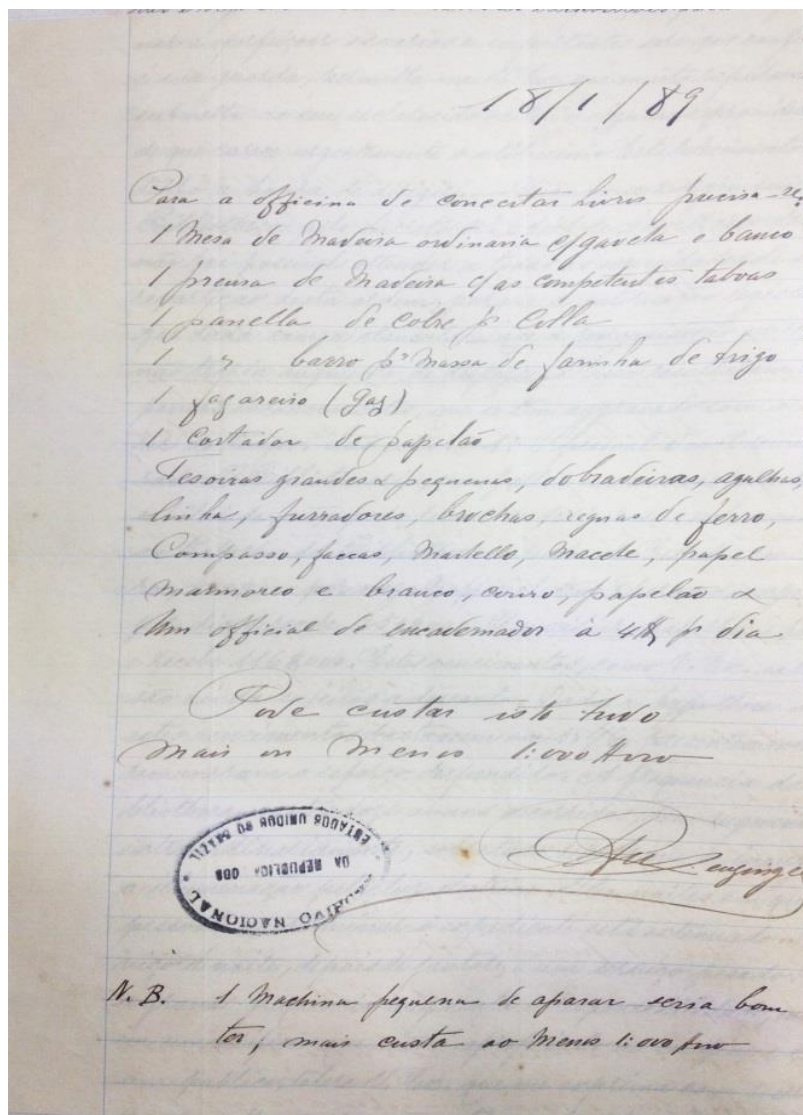 18/1/89
Para a officina de concertar livros precisa-se:
1 Mesa de Madeira ordinaria c/gaveta e banco
1 prensa de Madeira c/as competentes taboas
1 panella de Cobre pª Colla
1 " barro pª Massa de farinha de trigo
1 fogareiro (Gaz)
1 Cortador de papelão
Tesoiras grandes & pequenas, dobradeiras, agulhas,
linha, furradores, brochas, reguas de ferro,
Compasso, faccas, Martello, Macete, papel
Marmoreo e branco, couro, papelão &
Um official de encadernador à 4$ pr dia
Pode custar isto tudo
Mais ou Menos 1:000$000
Leuzinger
ARCHIVO NACIONAL
DA REPUBLICA DOS
ESTADOS UNIDOS DO BRAZIL
N. B. 1 Machina pequena de aparar seria bom
ter; mais custa ao Menos 1:000$000